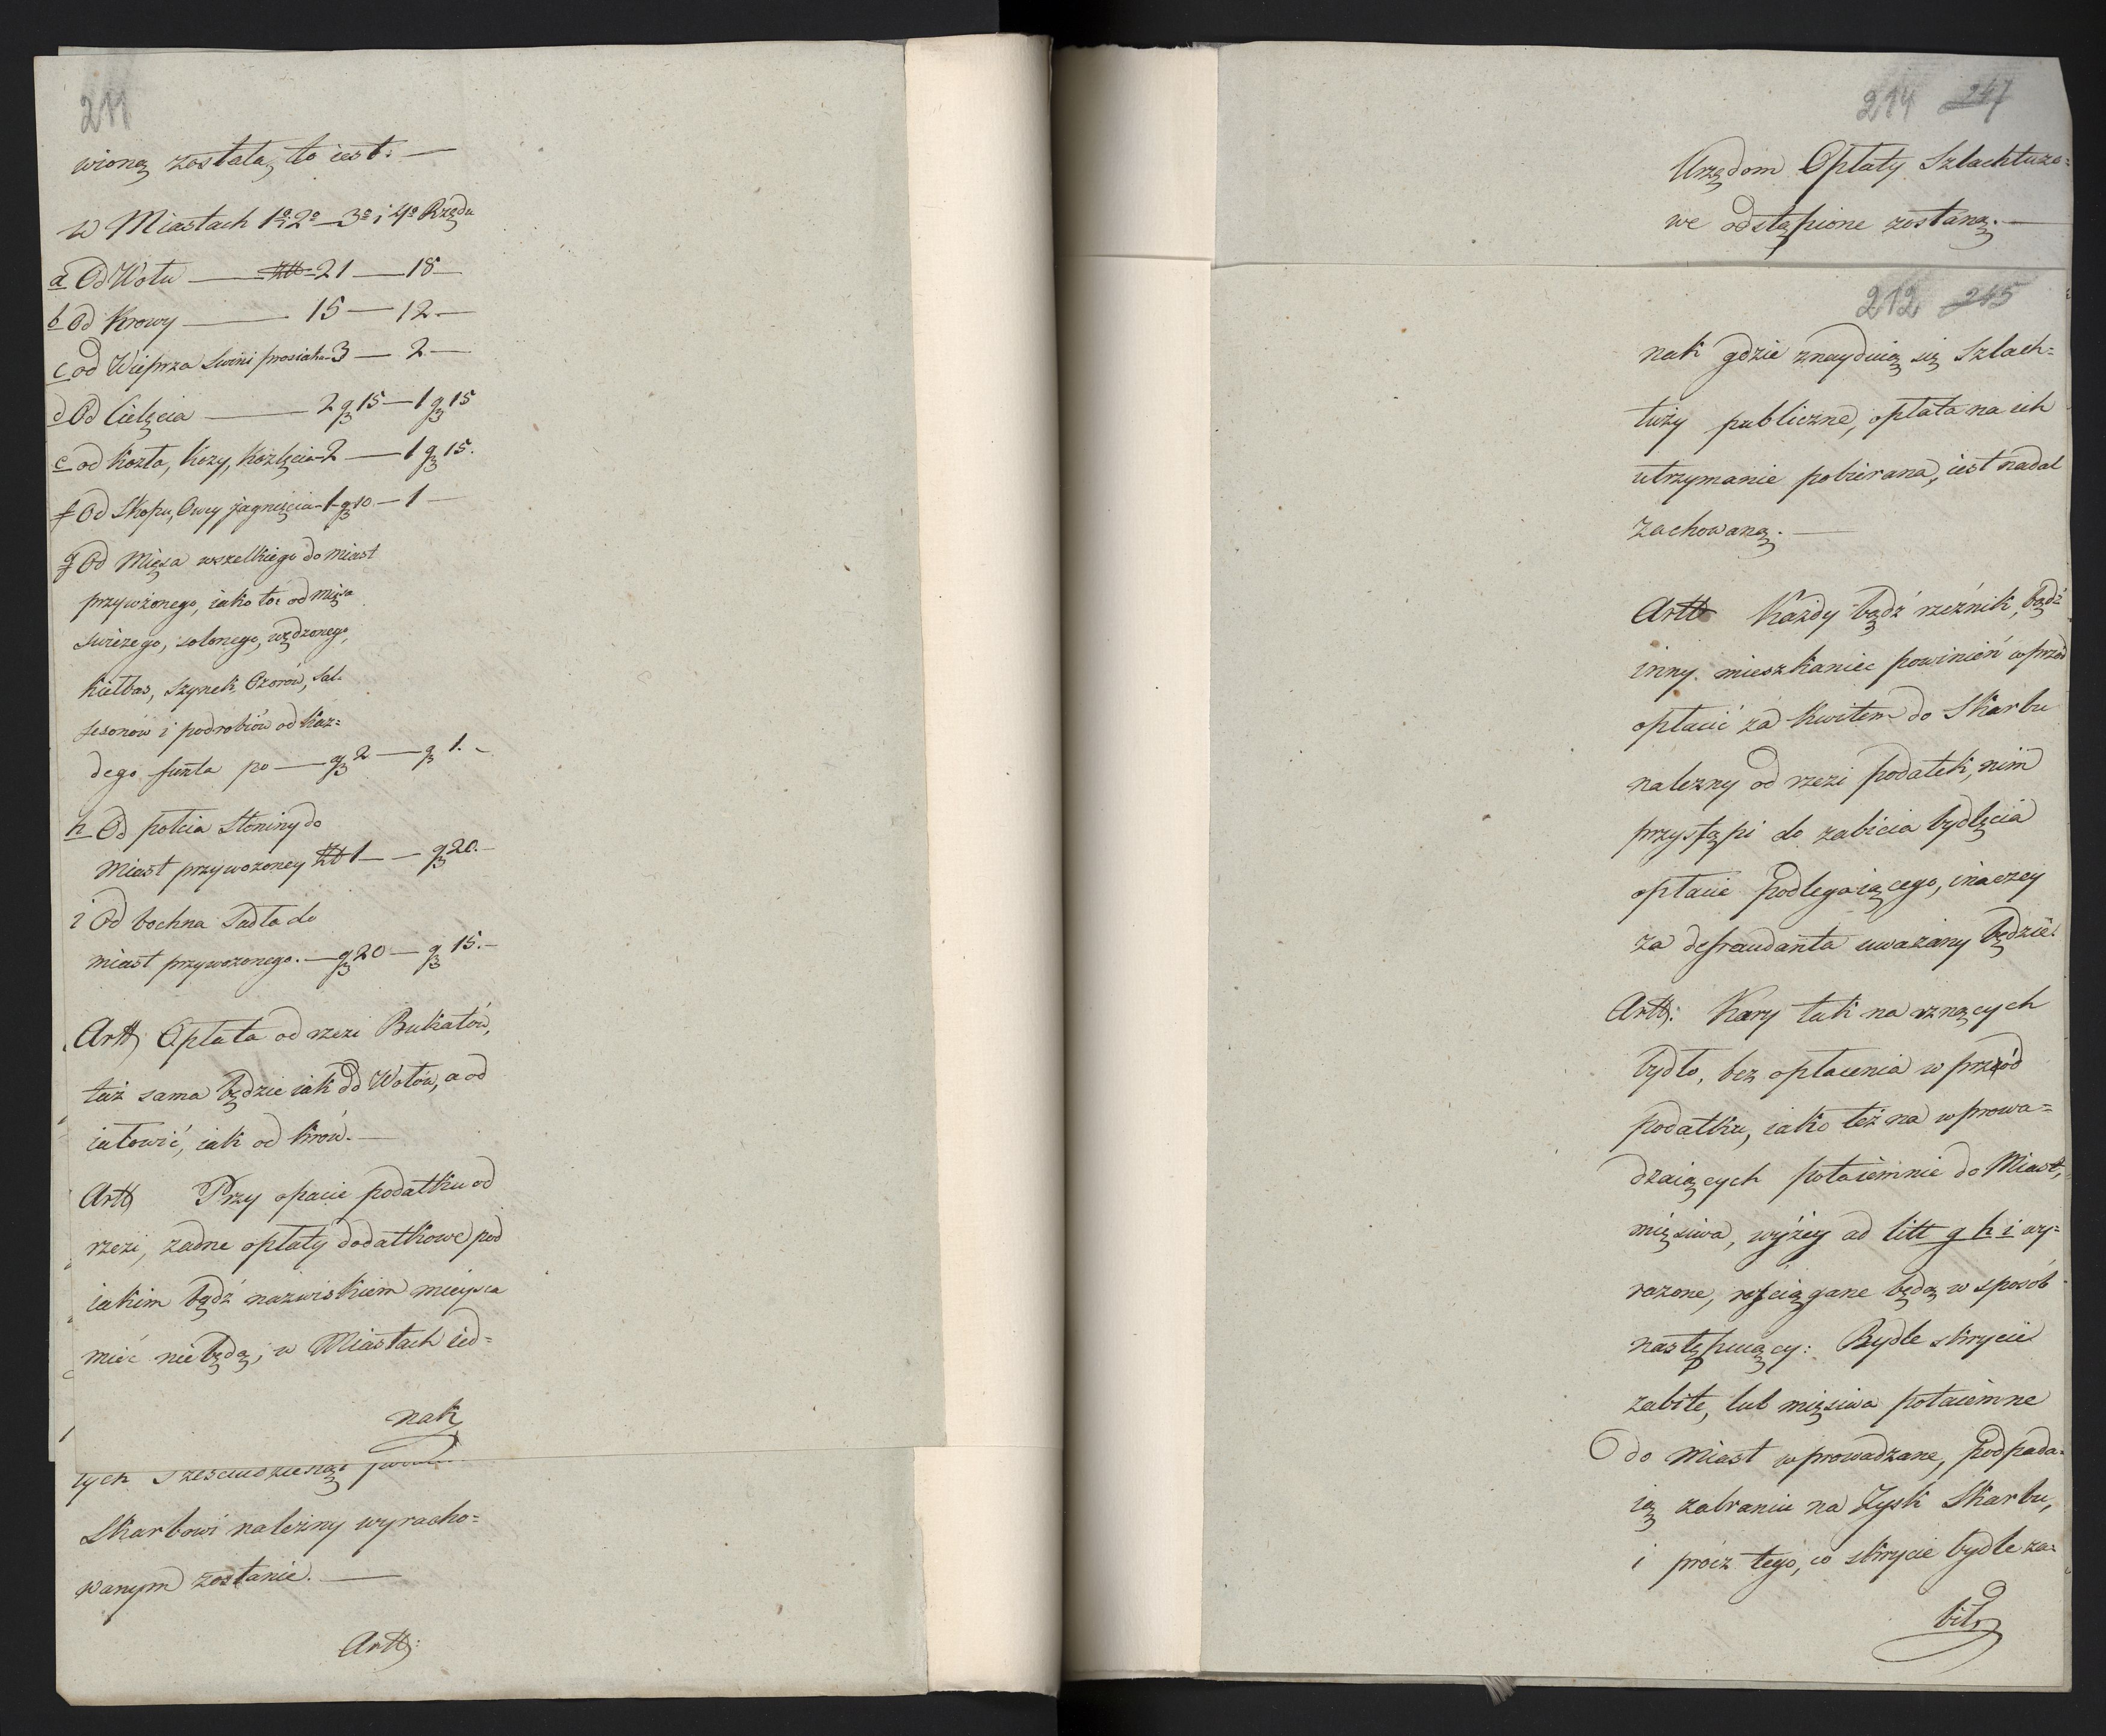 211
wioną została, to iest: —
w Miastach 1º 2º — 3º i 4º Rzędu
a Od Wołu — Zł 21 — 18 —
b Od Krowy — 15 — 12 —
c od Wieprza Swini prosiaka 3 — 2 —
d Od Cielęcia — 2 g 15 — 1 g 15
e od Kozła, Kozy, Koźlęcia 2 — 1 g 15.
f Od Skopu, Owcy jagnięcia 1 g 10 — 1 —
g Od Mięsa wszelkiego do miast
przywżonego, iako to: od mięsa
swieżego, solonego, wędzonego,
kiełbas, szynek Ozorów, Sal-
sesonów i podrobiów od każ=
dego funta po — g 2 — g 1. -
h Od połcia Słoniny do
Miast przywozoney Zł 1 — — g 20. —
i Od bochna Sadła do
miast przywozonego. — g 20 — g 15. —
Artt: Opłata od rzezi Bukatów,
taż sama będzie iak od Wołów, a od
iałowic, iak od krów. —
Artt Przy opacie podatku od
rzezi, żadne opłaty dodatkowe pod
iakim bądź nazwiskiem mieysca
mieć nie będą; w Miastach ied=
nak
tych Sześciudziesiąt
Skarbowi należny wyracho=
wanym zostanie. —
Artt:
214 247
Urzędom Opłaty Szlachtuzo=
we odstąpione zostaną. —
212 245
nak gdzie znayduią się Szlach=
tuzy publiczne, opłata na ich
utrzymanie pobierana, iest nadal
zachowaną. —
Artt Każdy bądź rzeźnik, bądź
inny mieszkaniec powinień wprzód
opłacić za kwitem do Skarbu
należny od rzezi podatek, nim
przystąpi do zabicia bydlęcia
opłacie podlegaiącego, inaczey
za defraudanta uważany będzie.
Artt: Kary tak na rznących
bydło, bez opłacenia w przód
podatku, iako też na wprowa=
dzaiących potaiemnie do Miast,
mięsiwa, wyżey ad litt g h i wy=
rażone, rościągane będą w sposób
następuiący: Bydle skrycie
zabite, lub mięsiwa potaiemne
do Miast wprowadzane, podpada=
ią zabraniu na Zysk Skarbu,
i prócz tego, co skrycie bydle za=
bił,